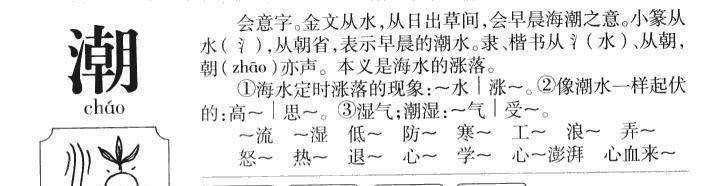 潮
cháo
会意字。金文从水，从日出草间，会早晨海潮之意。小篆从
水（氵），从朝省，表示早晨的潮水。隶、楷书从氵（水）、从朝，
朝（zhāo）亦声。本义是海水的涨落。
①海水定时涨落的现象：～水｜涨～。②像潮水一样起伏
的：高～｜思～。③湿气；潮湿：～气｜受～。
～流　～湿　低～　防～　寒～　工～　浪～　弄～
怒～　热～　退～　心～　学～　心～澎湃　心血来～